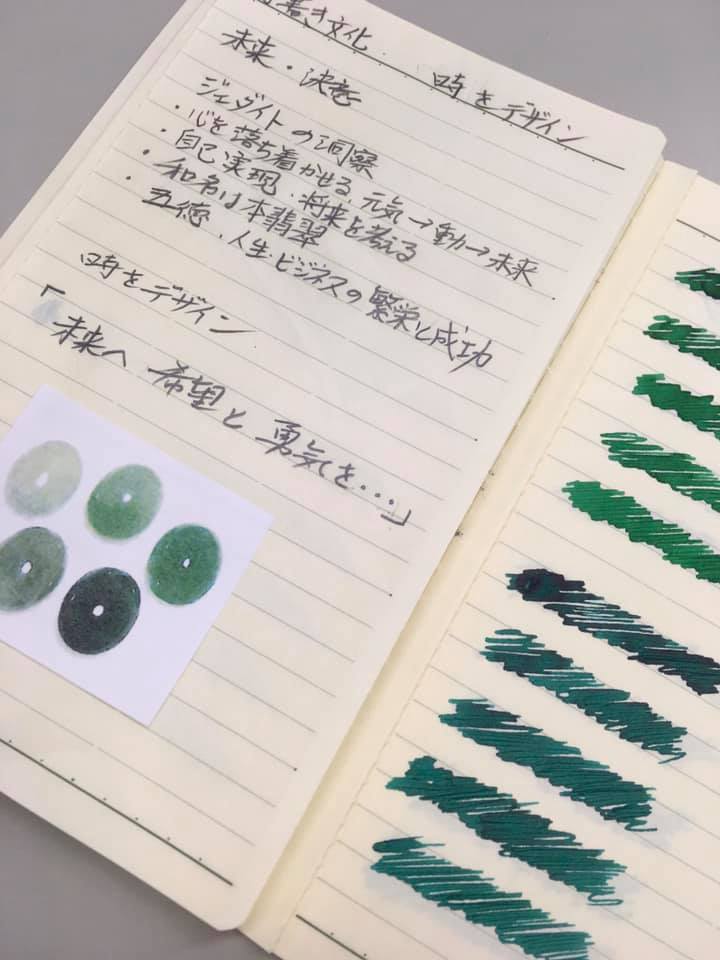 書き文化. 時をデザイン
未来・決意
ジェダイトの洞察
・心を落ち着かせる、元気→動→未来
・自己実現、将来を考える
・和名は本翡翠
・五徳、人生・ビジネスの繁栄と成功
時をデザイン
「未来へ 希望と 勇気を・・・」